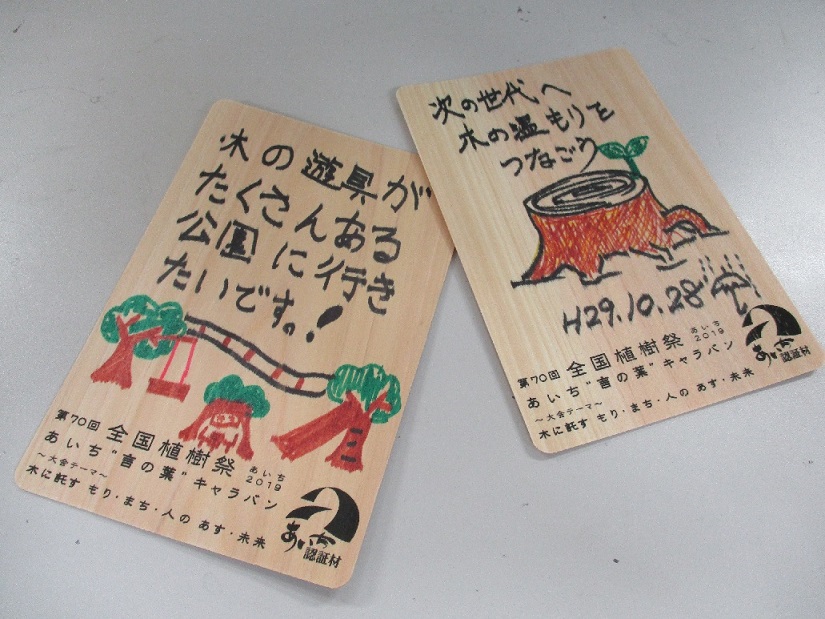 木の遊具が
たくさんある
公園に行き
たいです。!
第70回 全国植樹祭 あいち 2019
あいち"言の葉"キャラバン
～大会テーマ～
木に託す もり・まち・人の あす・未来
あいち
認証材
次の世代へ
木の温もりを
つなごう
H29.10.28
第70回 全国植樹祭 あいち 2019
あいち"言の葉"キャラバン
～大会テーマ～
木に託す もり・まち・人の あす・未来
あいち
認証材